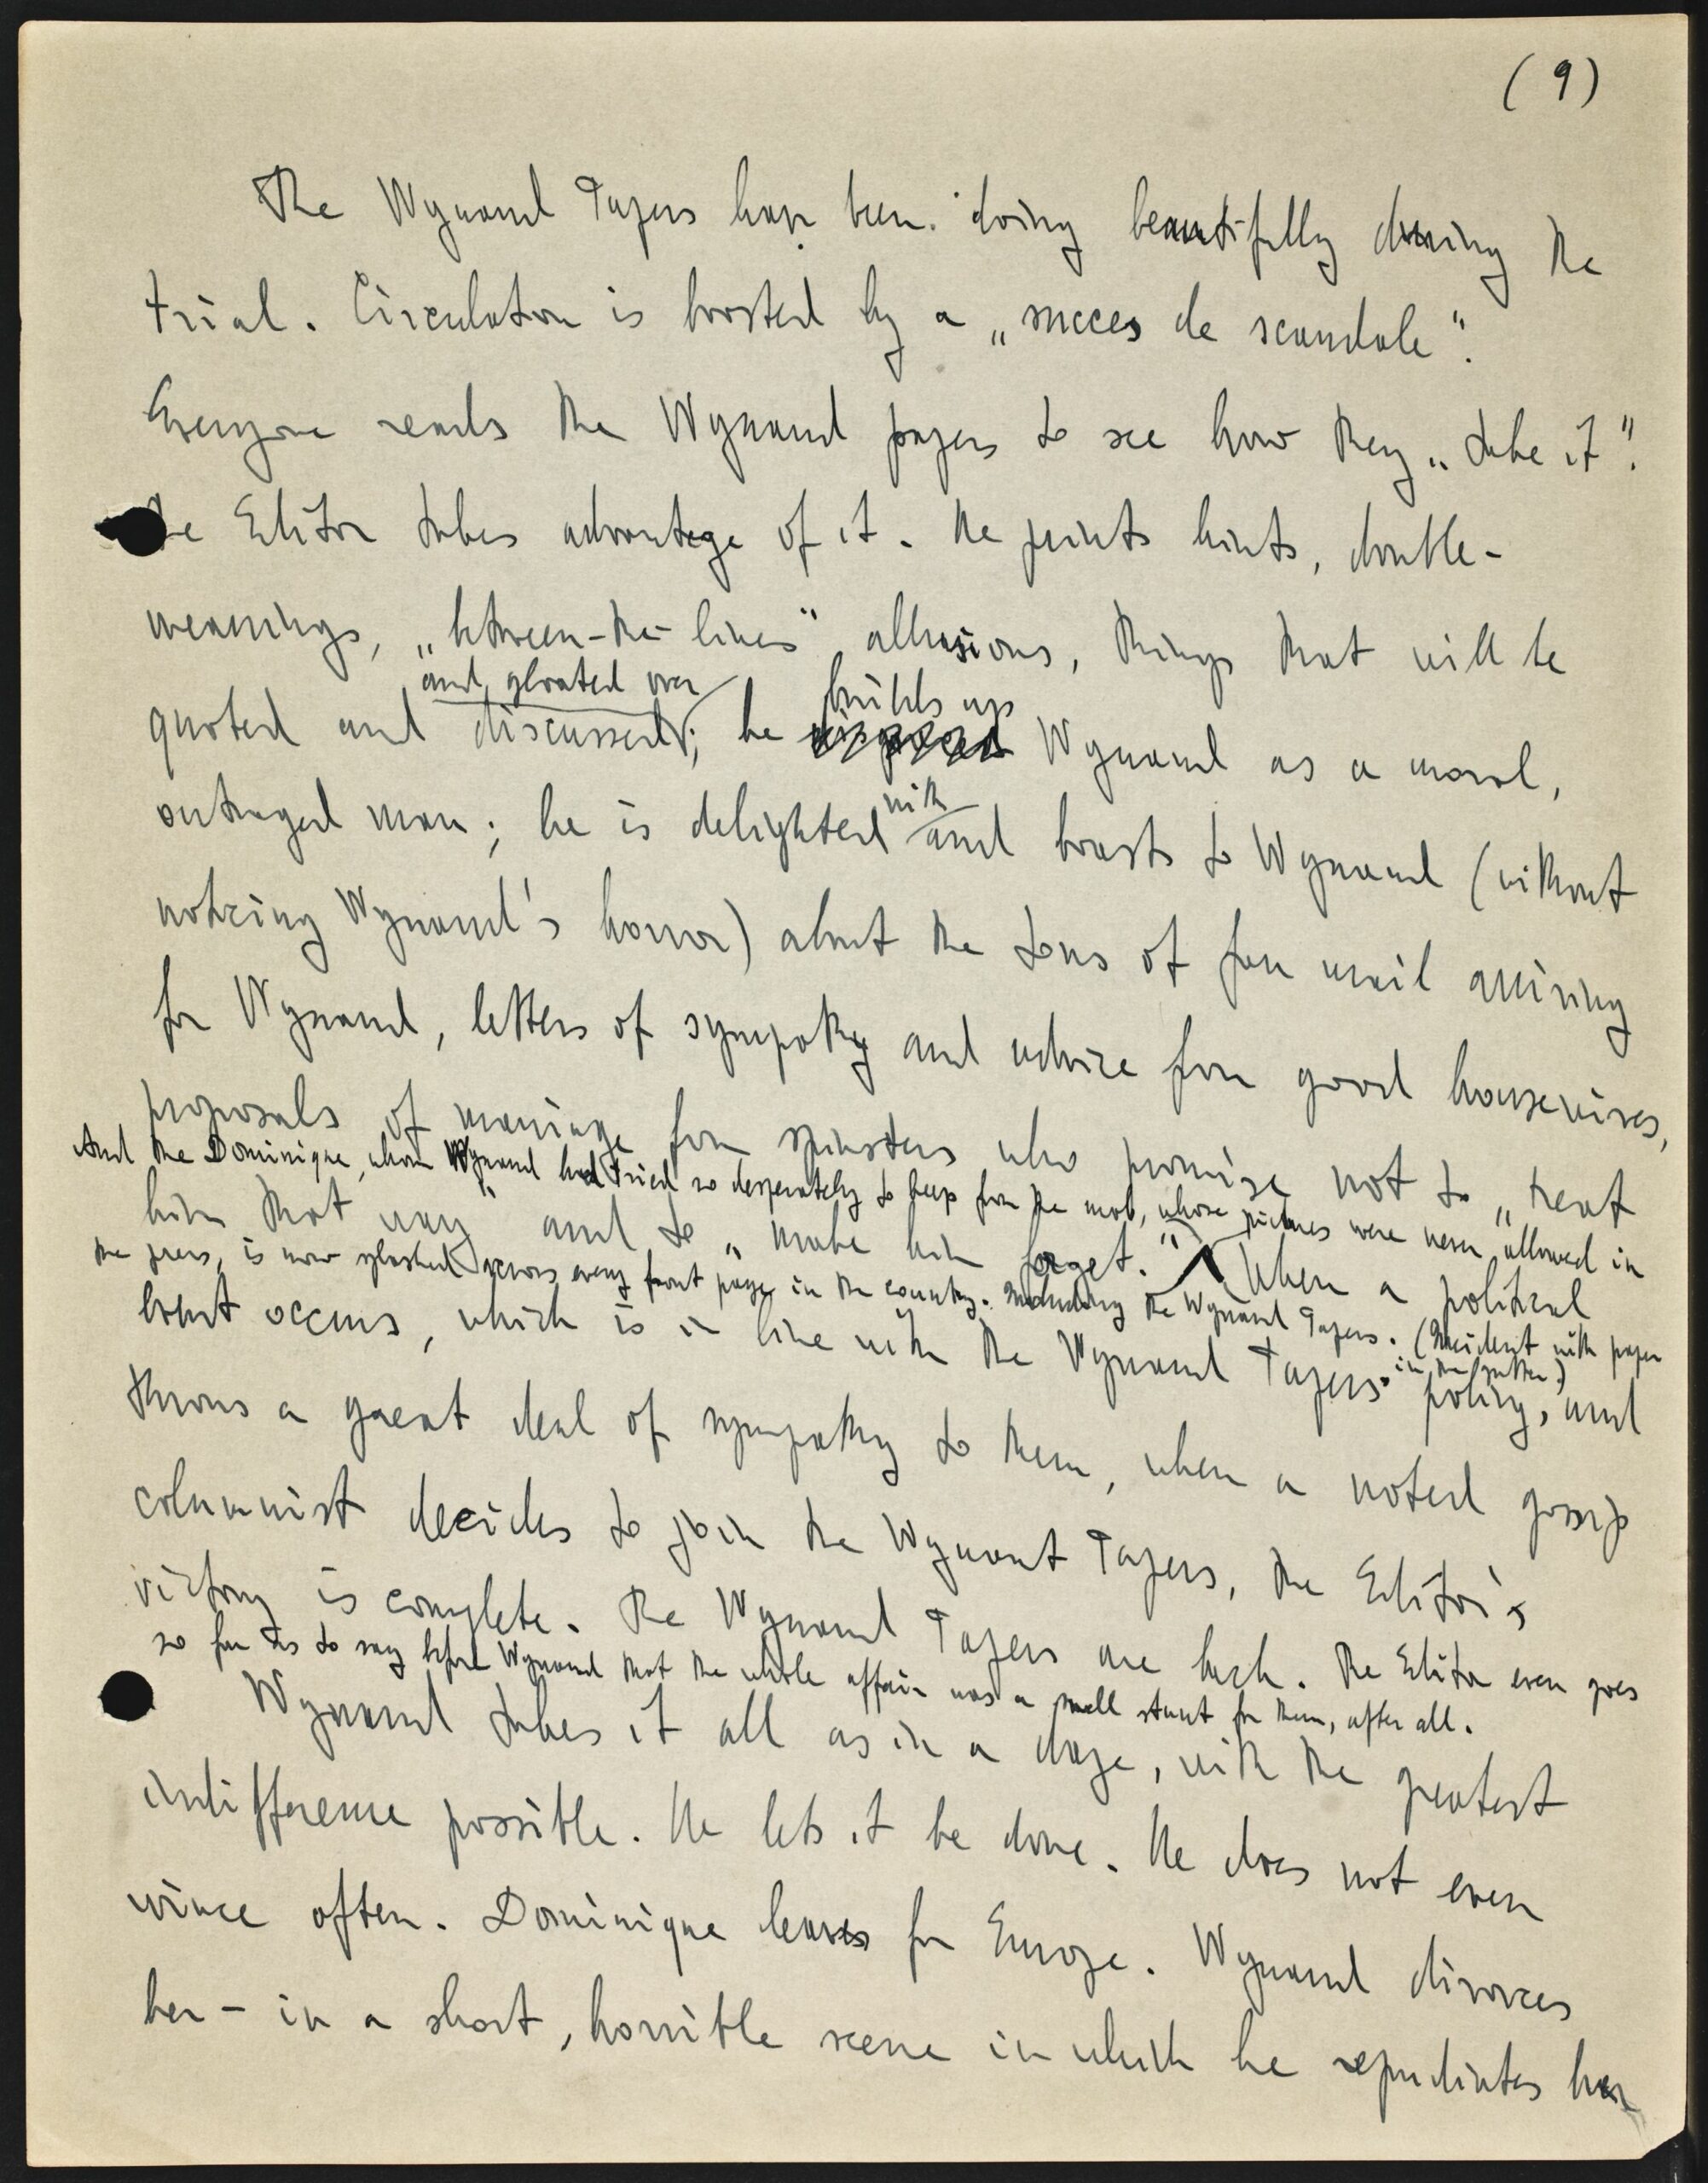 (9)
The Wynand Papers have been doing beautifully during the
trial. Circulation is boosted by a „succes de scandale".
Everyone reads the Wynand papers to see how they „take it".
The Editor takes advantage of it. He prints hints, double-
meanings, „between-the-lines" allusions, things that will be
and gloated over
quoted and discussed; he builds up Wynand as a moral,
outraged man; he is delighted with and boasts to Wynand (without
noticing Wynand's horror) about the tons of fan mail arriving
for Wynand, letters of sympathy and advice from good housewives,
proposals of marriage from spinsters who promise not to „treat
And the Dominique, whom Wynand had tried so desperately to keep from the mob, whose pictures were never allowed in
him that way" and to „make him forget." When a political
the press, is now splashed across every front page in the country. Including the Wynand Papers. (Incident with paper
in the gutter.)
event occurs, which is in line with the Wynand Papers' policy, and
throws a great deal of sympathy to them, when a noted gossip
columnist decides to join the Wynant Papers, the Editor's
victory is complete. The Wynand Papers are back. The Editor even goes
so far as to say before Wynand that the whole affair was a swell stunt for them, after all.
Wynand takes it all as in a daze, with the greatest
indifference possible. He lets it be done. He does not even
wince often. Dominique leaves for Europe. Wynand divorces
her – in a short, horrible scene in which he repudiates her